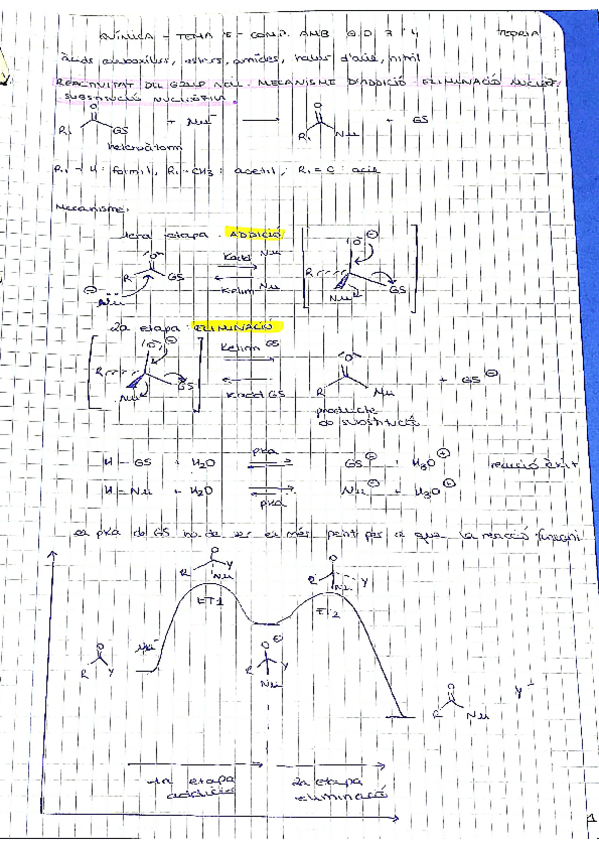 QUÍMICA - TEMA 5 - COMP. AMB G.O 3 i 4 TEORIA
àcids carboxílics, esters, amides, halurs d'àcid, nitril
REACTIVITAT DEL GRUP ACIL. MECANISME D'ADDICIÓ - ELIMINACIÓ NUCLEÒF.
SUBSTITUCIÓ NUCLEÒFILA.
O O
R₁ GS + Nu⁻ → R₁ Nu + GS
heteroàtom
R₁ - H: formil, R₁ - CH₃: acetil, R₁ = C: acil
Mecanisme:
1era etapa. ADDICIÓ
O Kadd Nu O ⊖
R GS Kelim Nu R GS
⊖ Nu Nu
2a etapa. ELIMINACIÓ
O ⊖ Kelim GS O
R GS Kadd GS R Nu + GS ⊖
Nu producte
de substitució
H - GS + H₂O pka GS ⊖ + H₃O ⊕ reacció àcit
H - Nu + H₂O pka Nu ⊖ + H₃O ⊕
el pka de GS ha de ser el més petit per a que la reacció funcioni
O Y O
R Nu R Nu Y
ET1 ET2
O Nu⁻ O ⊖
R Y R Y O Y⁻
Nu R Nu
1a etapa 2a etapa
addició eliminació
1